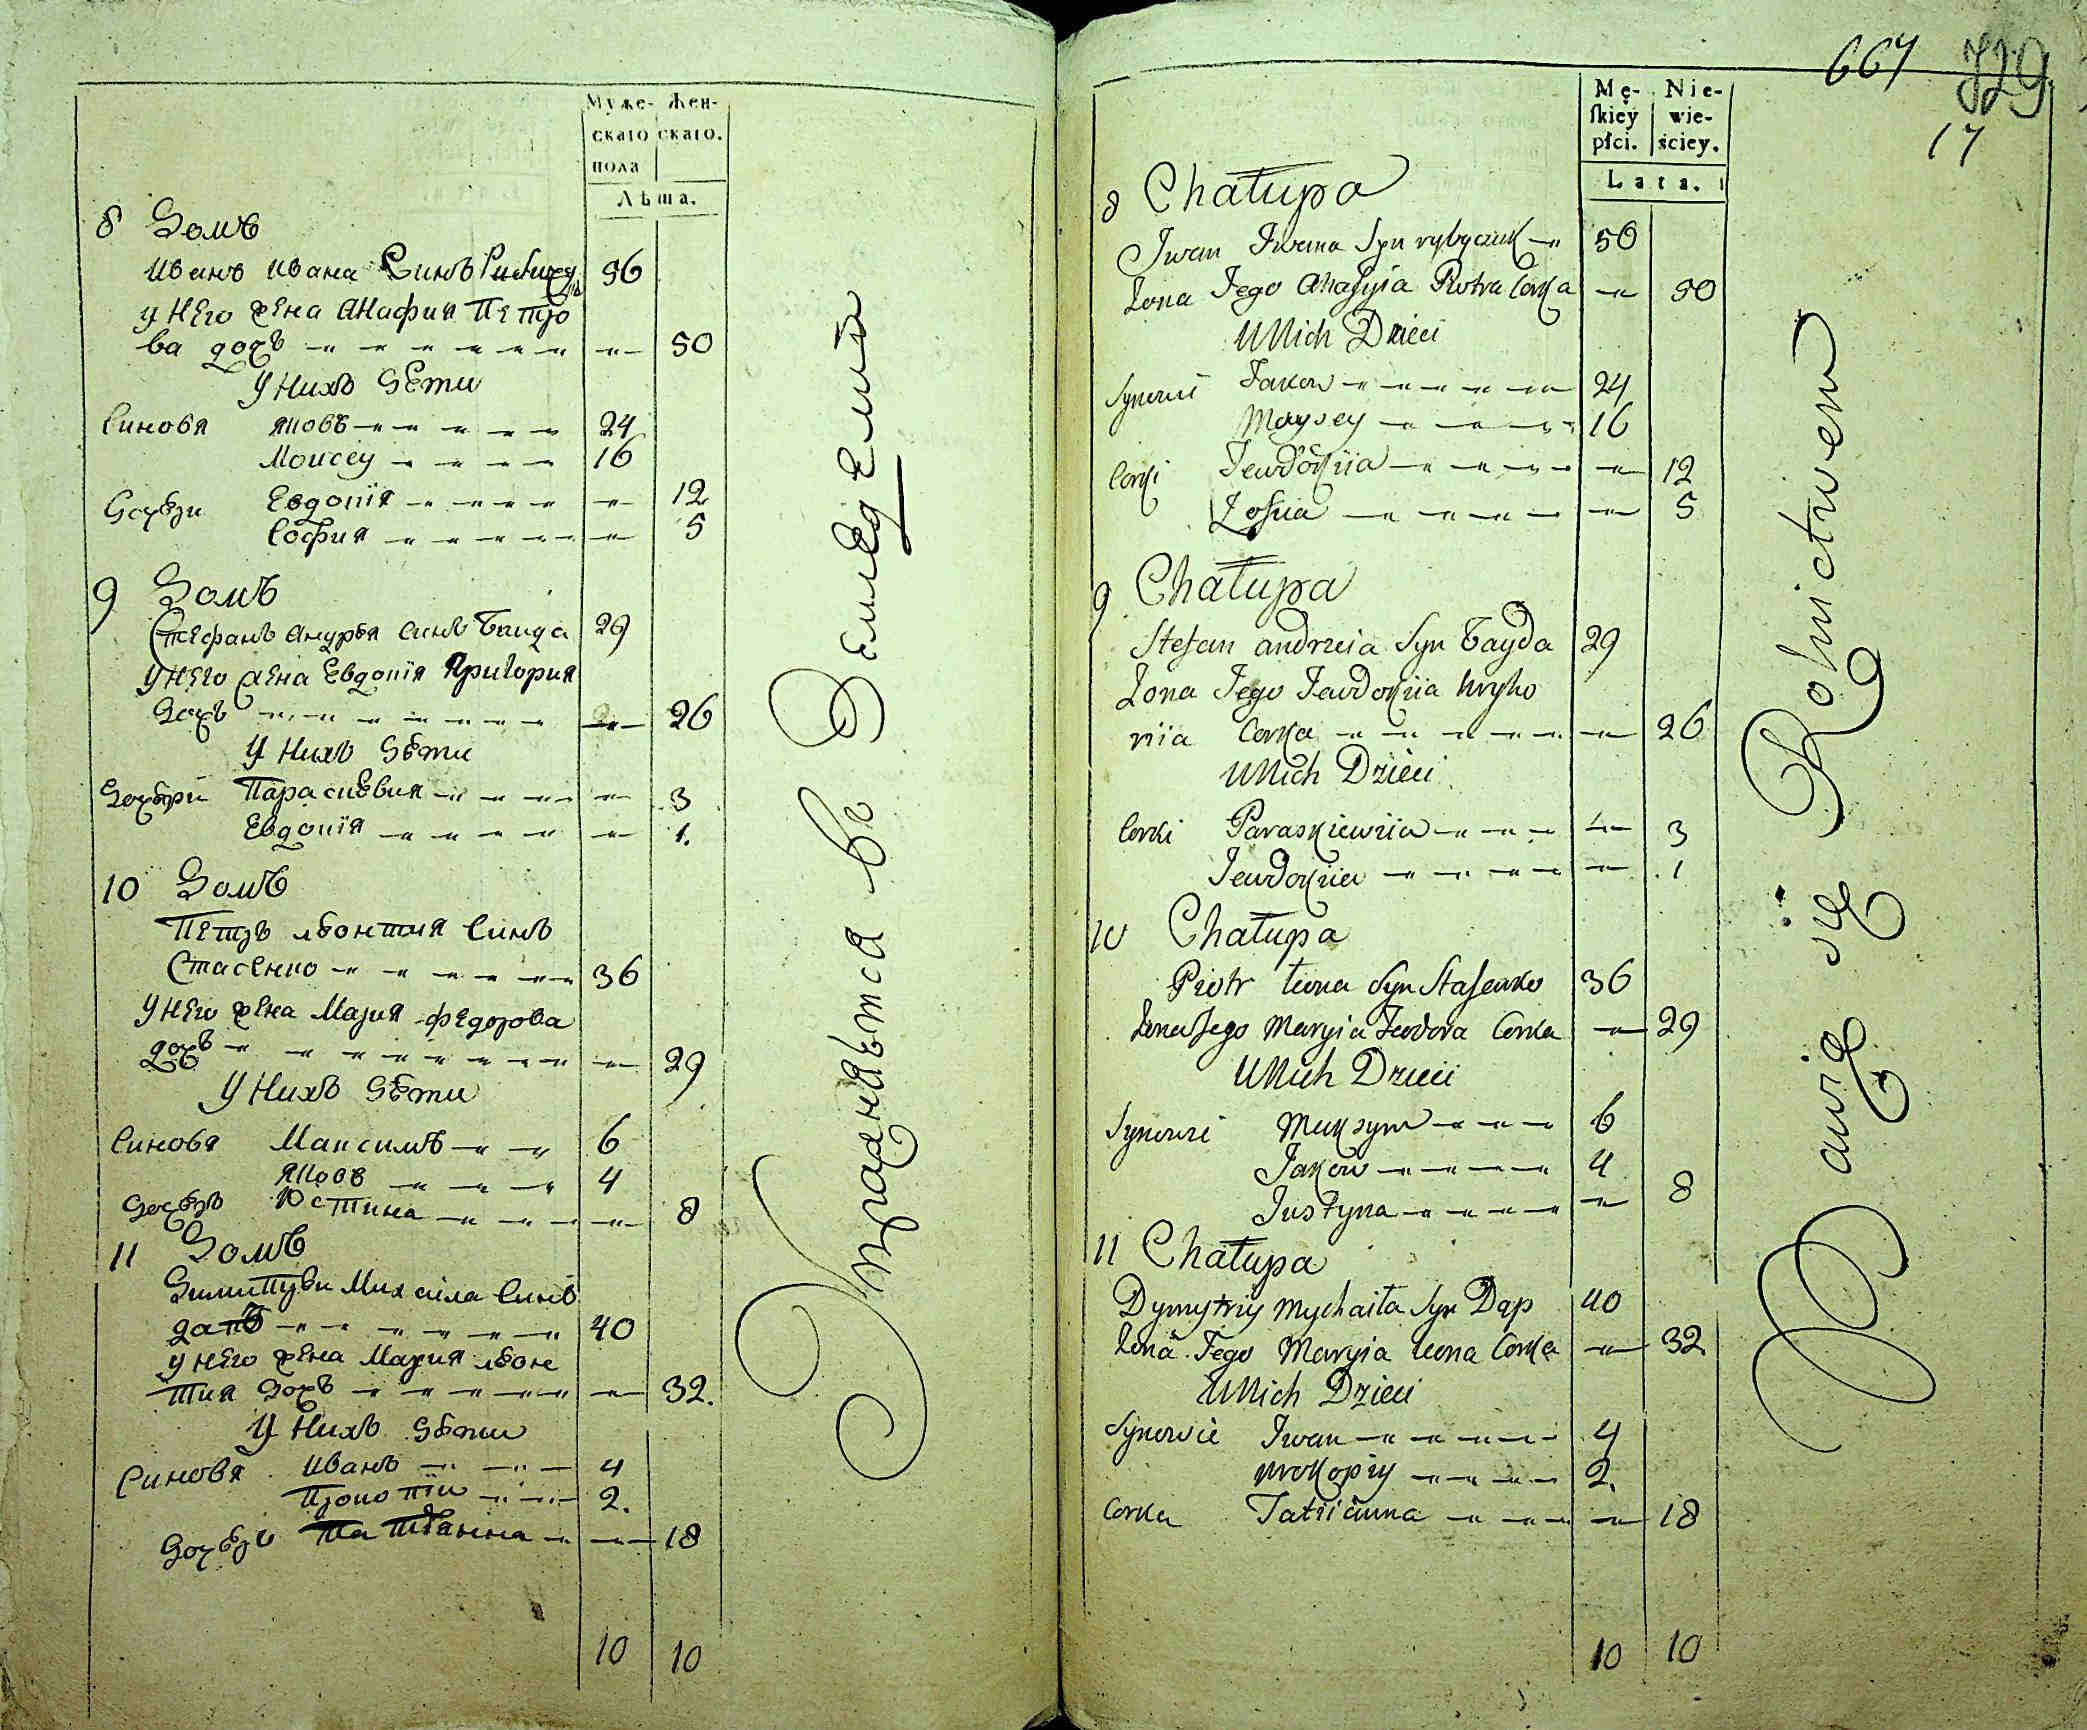 Муже- Жен-
скаго скаго.
пола
Лѣта.
8 Домъ
Иванъ Ивана Синъ 56
у Него жена Анафия Петро
ва дочъ 50
У Нихъ Дѣти
Синовя Яковъ 24
Моисеу 16
Дочѣри Евдокія 12
София 5
9 Домъ
Стефанъ Андрѣя Синъ Байда 29
у Него жена Евдокія Григория
Дочъ 26
У Нихъ Дѣти
Дочѣри Параскѣвия 3
Евдокія 1.
10 Домъ
Петръ лѣонтия Синъ
Стасенко 36
У Него жена Мария Федорова
дочъ 29
У Нихъ Дѣти
Синовя Максимъ 6
Яковъ 4
Дочѣръ Юстина 8
11 Домъ
Димитрѣи Михаила Синъ
дапъ 40
у Него жена Мария лѣоне
тия Дочъ 32.
У Нихъ Дѣти
Синовя Иванъ 4
Прокопіи 2.
Дочѣръ Татѣанна 18
10 10
Упражняѣтся въ Земледелии
667 729
17
Mę- Nie-
ſkiey wie-
płci. ściey.
Lata.
8 Chałupa
Iwan Iwana Syn rybyczuk 56
Żona Jego Anafyia Piotra Corka 50
U Nich Dzieci
Synowie Jakow 24
Moysey 16
Corki Jewdokiia 12
Zofiia 5
9 Chałupa
Stefan andrzeia Syn Bayda 29
Żona Jego Jewdokiia hryho
riia Corka 26
U Nich Dzieci
Corki Paraskiewiia 3
Jewdokiia 1
10 Chałupa
Piotr leona Syn Stasenko 36
Żona Jego Maryia Teodora Corka 29
U Nich Dzieci
Synowie Maksym 6
Jakow 4
Justyna 8
11 Chałupa
Dymytriy Mychaiła Syn Dąp 40
Żona Jego Maryia leona Corka 32
U Nich Dzieci
Synowie Iwan 4
Prokopiy 2.
Corka Tatiianna 18
10 10
Bawią się Rolnictwem